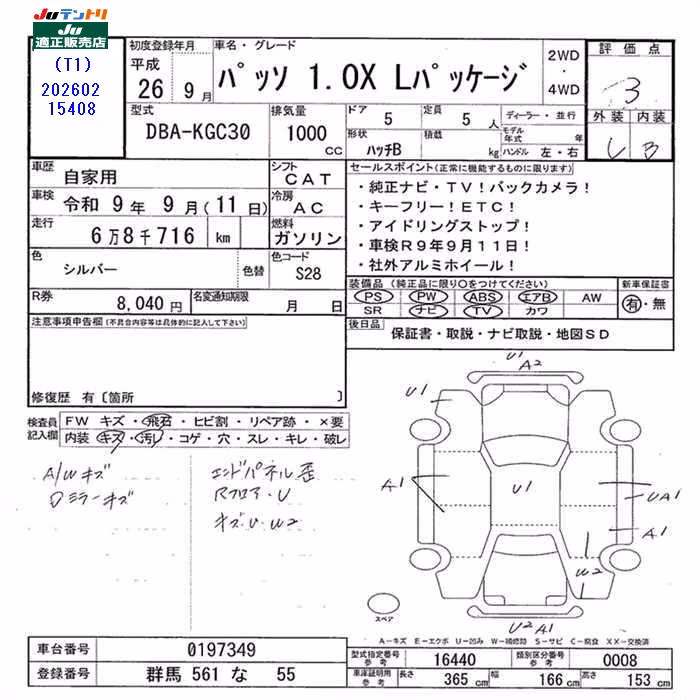 Juテントリ
Ju
適正販売店
(T1)
202602
15408
初度登録年月
平成
26 9月
車名・グレード
パッソ 1.0X Lパッケージ
2WD
・
4WD
評価点
3
外装 内装
C B
型式
DBA-KGC30
排気量
1000
CC
ドア
5
定員
5 人
ディーラー・並行
モデル
年式 年
形状
ハッチB
積載
kg
ハンドル 左・右
車歴
自家用
シフト
CAT
車検
令和 9年 9月(11日)
冷房
AC
走行
6万8千716 km
燃料
ガソリン
色
シルバー
色替
色コード
S28
R券
8,040円
名変通知期限
月 日
セールスポイント(正常に機能するものに限ります)
・純正ナビ・TV!バックカメラ!
・キーフリー!ETC!
・アイドリングストップ!
・車検R9年9月11日!
・社外アルミホイール!
装備品(純正品に限り〇をつけてください)
PS PW ABS エアB AW
SR ナビ TV カワ
新車保証書
有・無
後日品
保証書・取説・ナビ取説・地図SD
注意事項申告欄(不具合内容等は具体的に記入して下さい)
修復歴 有〔箇所 〕
検査員
記入欄
FW キズ・飛石・ヒビ割・リペア跡・×要
内装・キズ・汚レ・コゲ・穴・スレ・キレ・破レ
A/Wキズ
Dミラーキズ
エンドパネル歪
Rフロア・U
キズ・U・W2
U1
A2
U1
A1
U1
UA1
A1
W2
U2 A1
スペア
A-キズ E-エクボ U-凹み W-補修跡 S-サビ C-腐食 XX-交換済
車台番号
0197349
登録番号
群馬 561 な 55
型式指定番号
参考
16440
類別区分番号
参考
0008
車庫証明用
参考
長さ
365 cm
幅
166 cm
高さ
153 cm